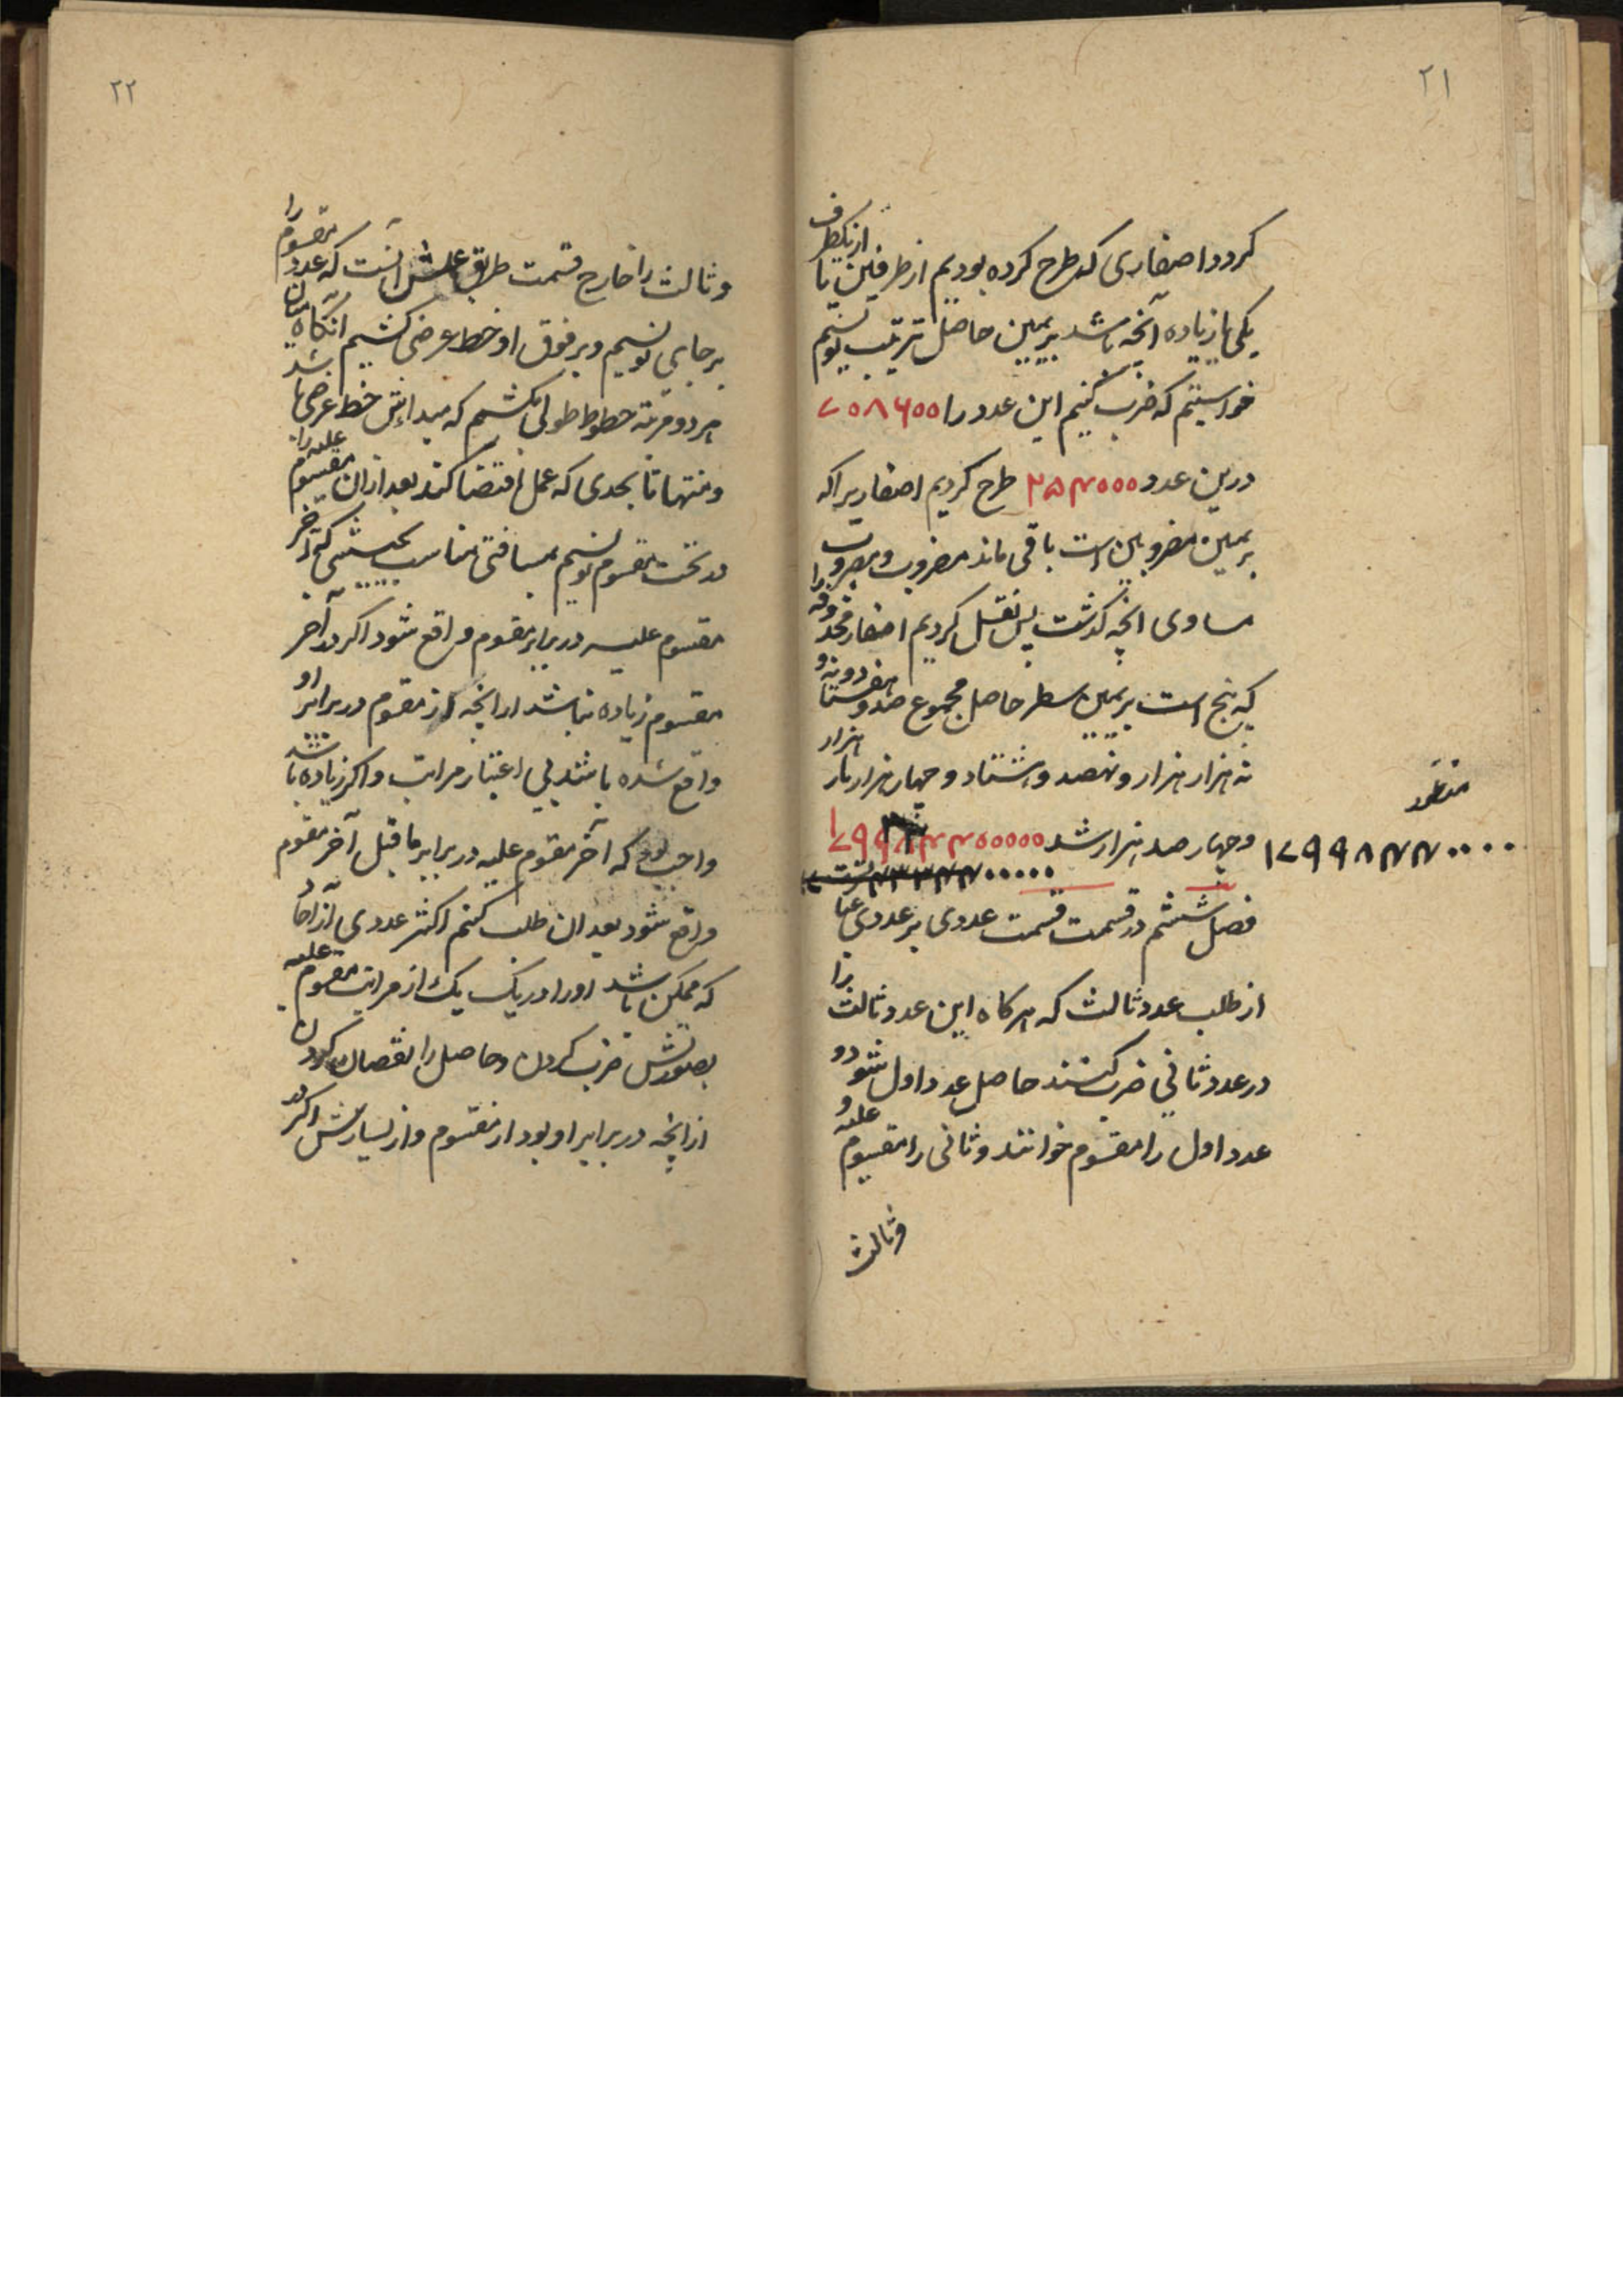 ۲۱
کردد اصفاری که طرح کرده بودیم از طرفین یا از یکطرف
یکی یا زیاده آنچه باشد بریمین حاصل ترتیب نویسیم
خواستیم که ضرب کنیم این عدد را ۷۰۸۶۰۰
درین عدد ۲۵۴۰۰۰ طرح کردیم اصفاریرا که
بریمین مضروبین است باقی ماند مضروب و مضروب
مساوی انچه کذشت پس نقل کردیم اصفار محذوفه را
که پنج است بریمین سطر حاصل مجموع صد و هفتاد و نه
نه هزار هزار و نهصد و هشتاد و چهار هزار بار هزار
و چهار صد هزار شد ۱۷۹۹۸۴۴۰۰۰۰۰
۱۷۹۹۸۴۴۰۰۰۰
فصل ششم در قسمت قسمت عددی بر عددی عبا
از طلب عدد ثالث که هر کاه این عدد ثالث را
در عدد ثانی ضرب کنند حاصل عدد اول شود و
عدد اول را مقسوم خوانند و ثانی را مقسوم علیه و
و ثالث
۲۲
و ثالث را خارج قسمت طریق عملش آنست که عدد مقسوم را
بر جای نویسیم و بر فوق او خط عرضی کشیم آنکاه میان
هر دو مرتبه خطوط طولی بکشیم که مبداش خط عرضی باشد
و منتها تا بحدی که عمل اقتضا کند بعد ازان مقسوم علیه را
در تحت مقسوم نویسیم بمسافتی مناسب بحیثیتی که آخر
مقسوم علیه در برابر مقسوم واقع شود اکر در آخر
مقسوم زیاده نباشد از انچه از مقسوم در برابر او
واقع شده باشد بی اعتبار مراتب و اکر زیاده باشد
واجب بود که آخر مقسوم علیه در برابر ما قبل آخر مقسوم
واقع شود بعد ان طلب کنیم اکثر عددی از آحاد
که ممکن باشد او را در یک یک از مراتب مقسوم علیه
بصورتش ضرب کردن و حاصل را نقصان کردن
از انچه در برابر او بود از مقسوم و از یسارش اکر در